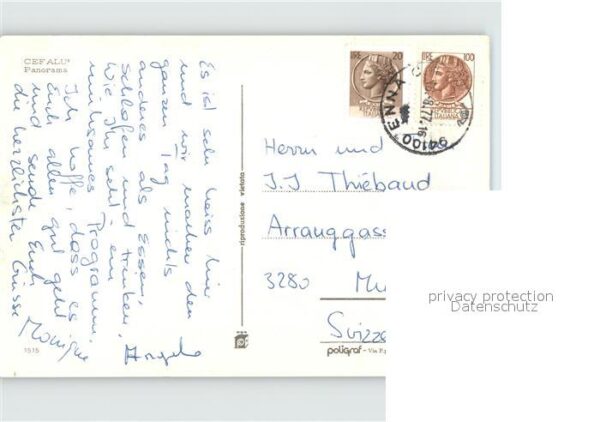 CEFALU'
Panorama
Es ist sehr heiss hier
und wir machen den
ganzen Tag nichts
anderes als Essen,
Schlafen und trinken.
Wie Ihr seht ein
mühsames Programm.
Ich hoffe, dass es
Euch allen gut geht
und sende Euch
die herzlichsten Grüsse Monique
Angelo
1515
riproduzione vietata
poligraf - Via P.
LIRE 20
LIRE 100
94100 ENNA
8.77.16
Herrn und
J.J Thiébaud
Arrauggass
3280 Mu
Svizze
privacy protection
Datenschutz